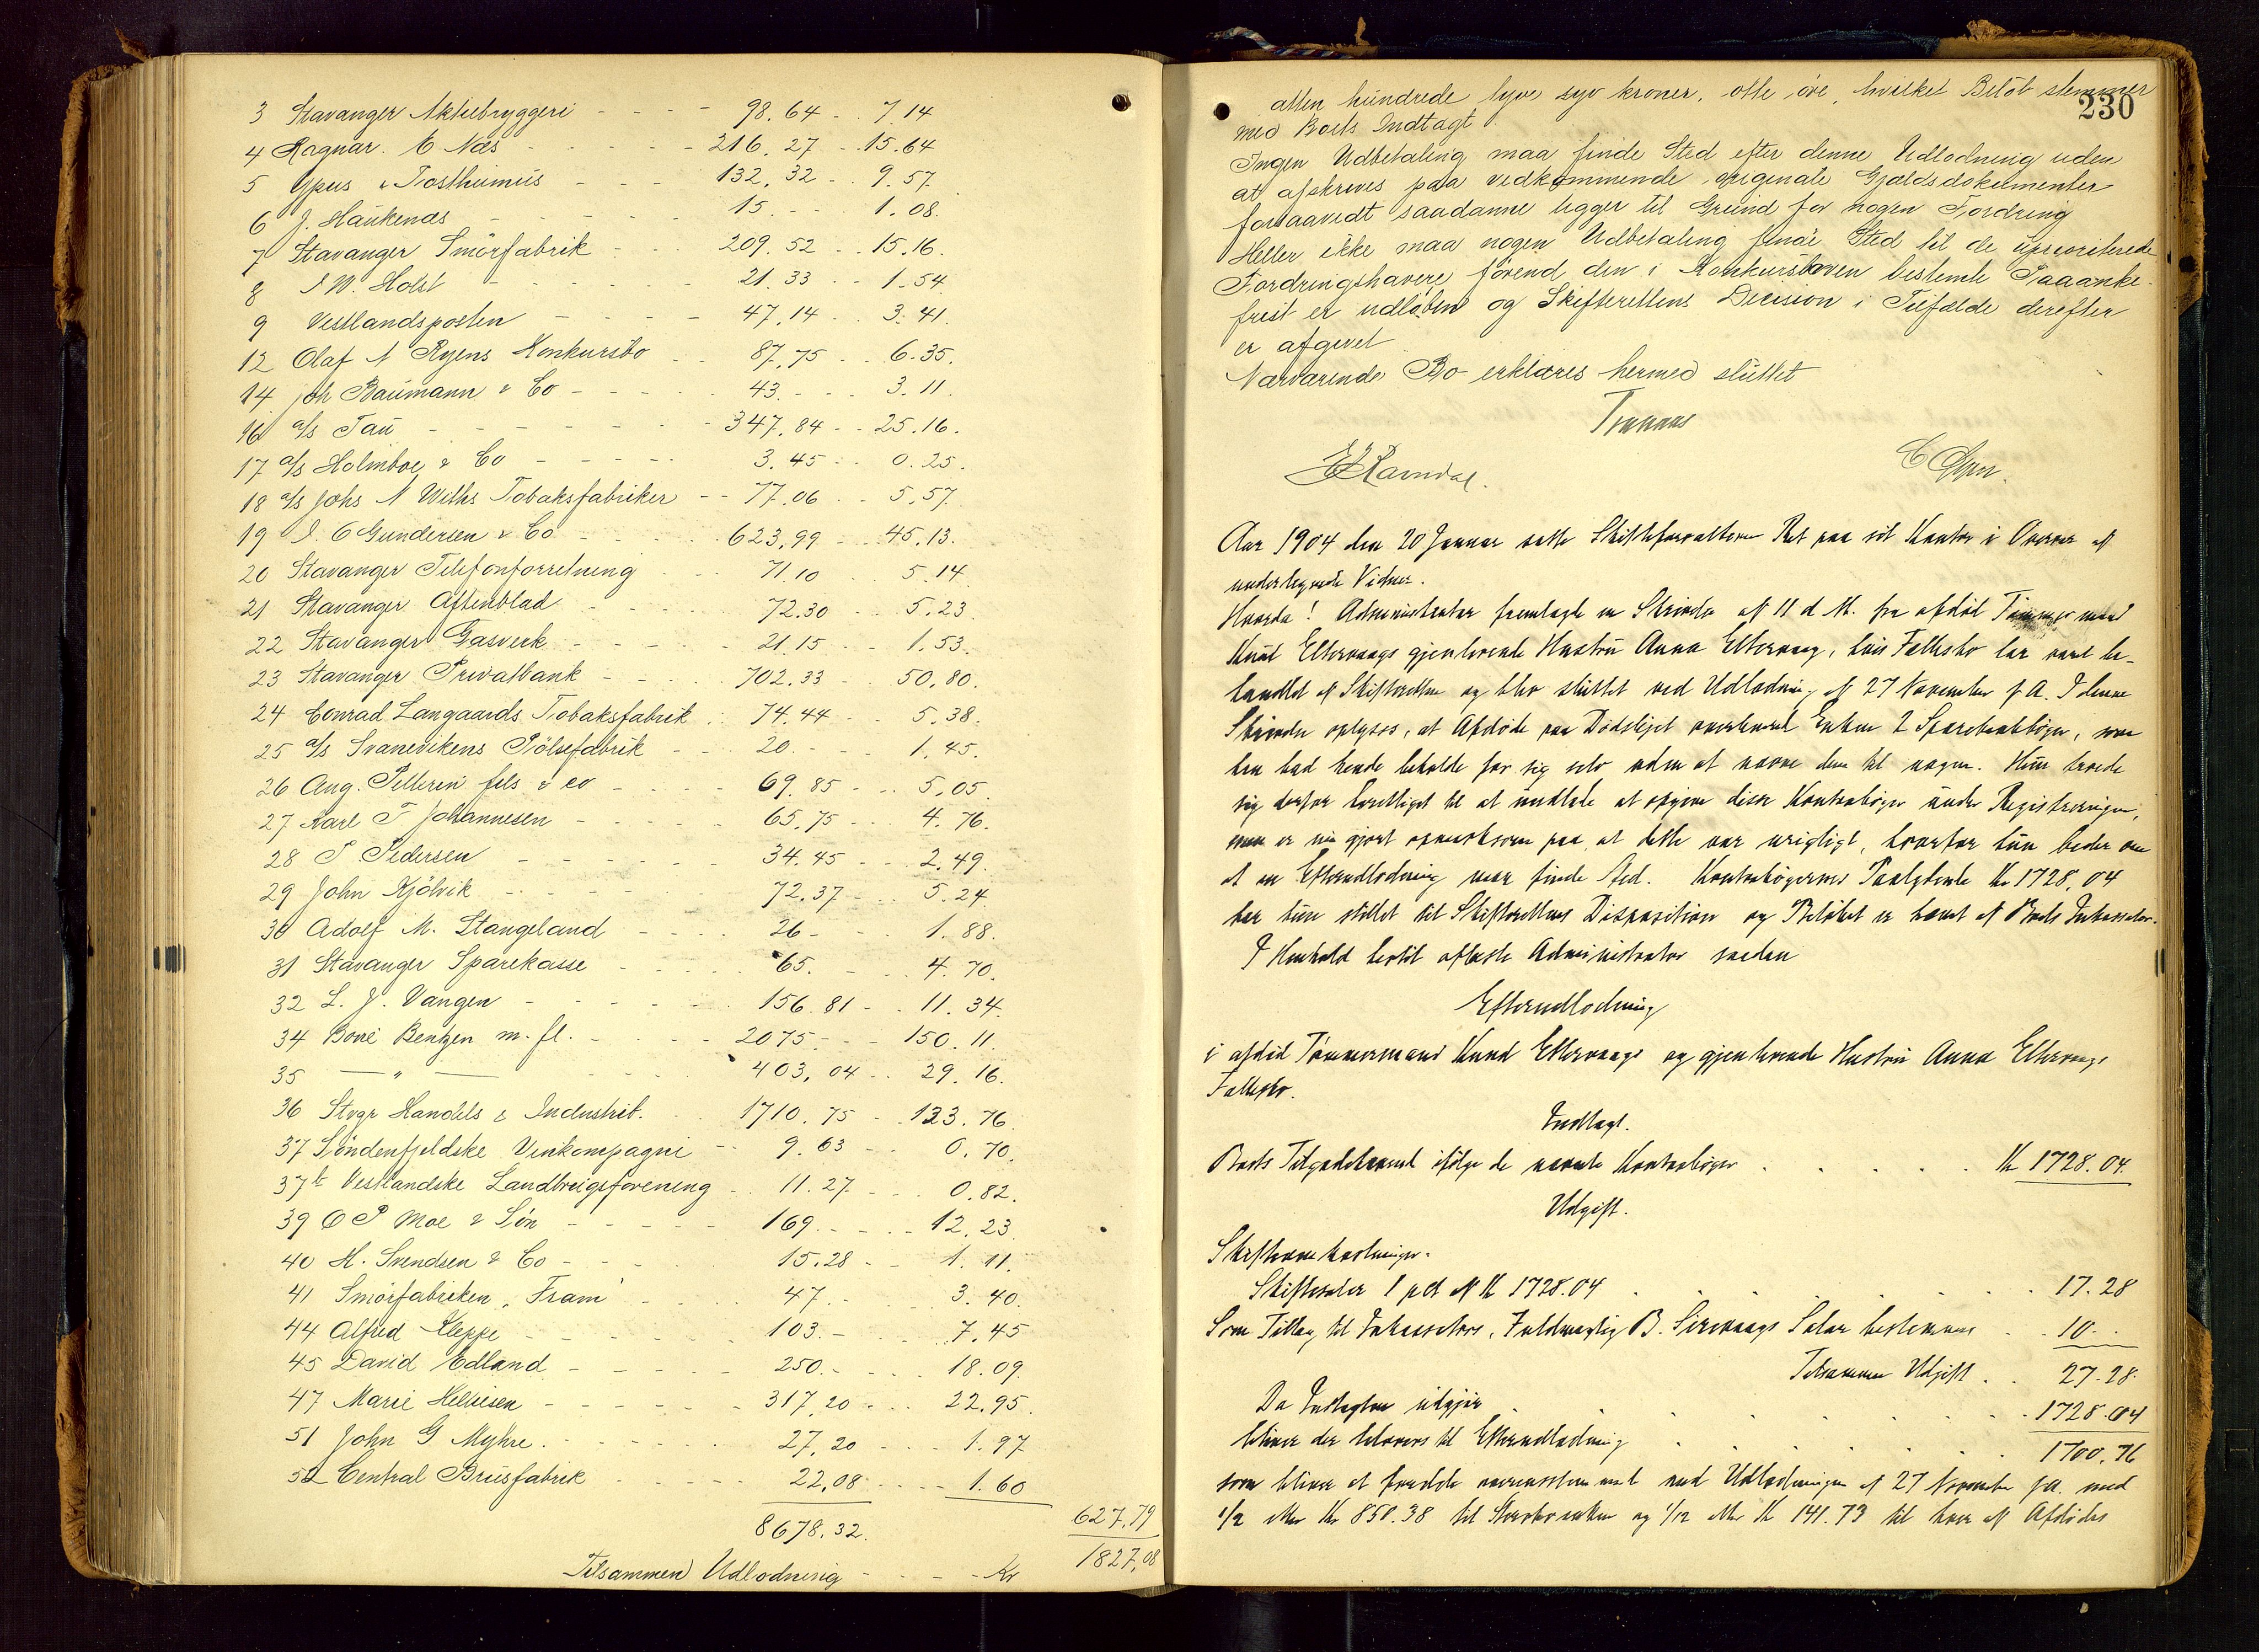 3 Stavanger Aktiebryggeri - - - 98.64 - - 7.14
4 Ragnar. C Næs - - - - - 216.27 - 15.64
5 Ypus & Posthumus - - - 132.32 - 9.57
6 J. Haukenæs - - - - 15. - - 1.08.
7 Stavanger Smörfabrik - - 209.52 - - 15.16.
8 I W. Holst - - - - - 21.33 - - 1.54
9 Vestlandsposten - - - - 47.14 - - 3.41.
12 Olaf N Ryens Konkursbo - - 87.75 - - 6.35.
14 Joh Baumann & Co - - - - 43. - - - 3.11.
16 a/s Tau - - - - - - 347.84 - - 25.16.
17 a/s Holmboe & Co - - - - - 3.45 - - 0.25.
18 a/s Johs N Withs Tobaksfabriker - - 77.06 - - 5.57.
19 I. C Gundersen & Co - - - - 623.99 - - 45.13.
20 Stavanger Telefonforretning - - 71.10 - - 5.14
21 Stavanger Aftenblad - - - 72.30 - - 5.23
22 Stavanger Gasverk - - - - 21.15 - - 1.53.
23 Stavanger Privatbank - - - - 702.33 - - 50.80.
24 Conrad Langaards Tobaksfabrik - 74.44 - - 5.38.
25 a/s Svanevikens Pölsefabrik - - 20. - - - 1.45.
26 Aug. Pellerin fils & co - - - - 69.85 - - 5.05.
27 Karl T Johannesen - - - - - 65.75 - - 4.76.
28 P Pedersen - - - - - 34.45 - - 2.49.
29 John Kjölvik - - - - - 72.37 - - 5.24
30 Adolf M. Stangeland - - - - 26 - - - 1.88.
31 Stavanger Sparekasse - - - - 65. - - 4.70.
32 L. J. Vangen - - - - - 156.81 - - 11.34.
34 Boué Bentzen m. fl. - - - - 2075. - - - 150.11.
35 — " — - - - 403,04 - - 29.16.
36 Stvgr Handels & Industrib. - - 1710.75 - - 123.76.
37 Söndenfjeldske Vinkompagni - - 9.63 - - 0.70.
37b Vestlandske Landbrugsforening - - 11.27 - - - 0.82.
39 O P Moe & Sön - - - - - 169. - - - 12.23
40 H. Svendsen & Co - - - - 15.28 - - 1.11.
41 Smörfabriken "Fram" - - - 47. - - - 3.40.
44 Alfred Kleppe - - - - - 103. - - - 7.45
45 David Edland - - - - 250. - - - 18.09.
47 Marie Helliesen - - - - - 317,20 - - - 22.95.
51 John G Myhre. - - - - - 27,20 - - - 1.97
52 Central Brusfabrik - - - - - 22,08 - - - 1.60
8678.32. 627,79
Tilsammen Udlodning - - - - Kr 1827,08
230
atten hundrede tyve syv kroner, otte öre, hvilket Belöb stemmer
med Boets Indtægt.
Ingen Udbetaling maa finde Sted efter denne Udlodning uden
at afskrives paa vedkommende originale Gjældsdokumenter
forsaavidt saadanne ligger til Grund for nogen Fordring
Heller ikke maa nogen Udbetaling finde Sted til de uprioriterede
Fordringshavere förend den i Konkursloven bestemte Paaanke-
frist er udlöben og Skifterettens Decision i Tilfælde derefter
er afgivet
Nærværende Bo erklæres hermed sluttet
Aar 1904 den 20 Januar satte Skifteforvalteren Ret paa sit Kontor i Overvær af
undertegnede Vidner.
Hvorda! Administrator fremlagde en Skrivelse af 11 d M. fra afdöd Tömmermand
Knud Eltervaags gjenlevende Hustru Anna Eltervaag, hvis Fællesbo har været be-
handlet af Skifteretten og blev sluttet ved Udlodning af 27 November f A. I denne
Skrivelse oplyses, at Afdöde paa Dödslejet overleverede Enken 2 Sparebankböger, som
han bad hende beholde for sig selv uden at nævne dem til nogen. Hun troede
sig derfor berettiget til at undlade at opgive disse Kontraböger under Registreringen,
men er nu gjort opmærksom paa, at dette var urigtigt, hvorfor hun beder om
at en Efterudlodning maa finde Sted. Kontrabögernes Paalydende Kr 1728,04
har hun stillet til Skifterettens Disposition og Belöbet er hævet af Boets Inkassator.
I Henhold hertil afsagde Administrator saadan
Efterudlodning
i afdöd Tömmermand Knud Eltervaags og gjenlevende Hustru Anna Eltervaags
Fællesbo.
Indtægt.
Boets Tilgodehavende ifölge de nævnte Kontraböger . . . . . Kr 1728.04.
Udgift.
Skifteomkostninger.
Skiftesalær 1 pct af Kr 1728.04 . . . . . 17.28
Som Tillæg til Inkassators, Fuldmægtig B. Sirevaags Salær bestemmes . . 10. -
Tilsammen Udgift . . 27.28.
Da Indtægten udgjör . . . . . 1728.04
bliver der tilovers til Efterudlodning . . . . . 1700,76
som bliver at fordele overensstemmende med Udlodningen af 27 November f A. med
1/2 eller Kr 850.38 til Stervboenken og 1/12 eller Kr 141.73 til hver af Afdödes